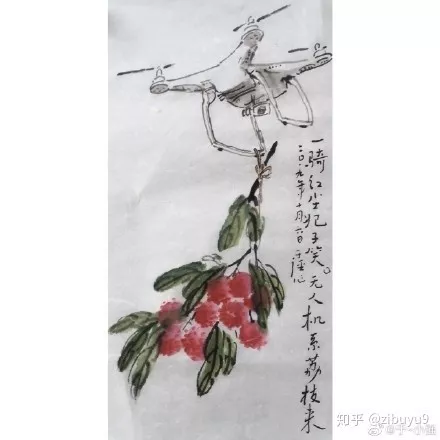 一骑红尘妃子笑。无人机系荔枝来
二〇一九年十月六日
知乎 @zibuyu9